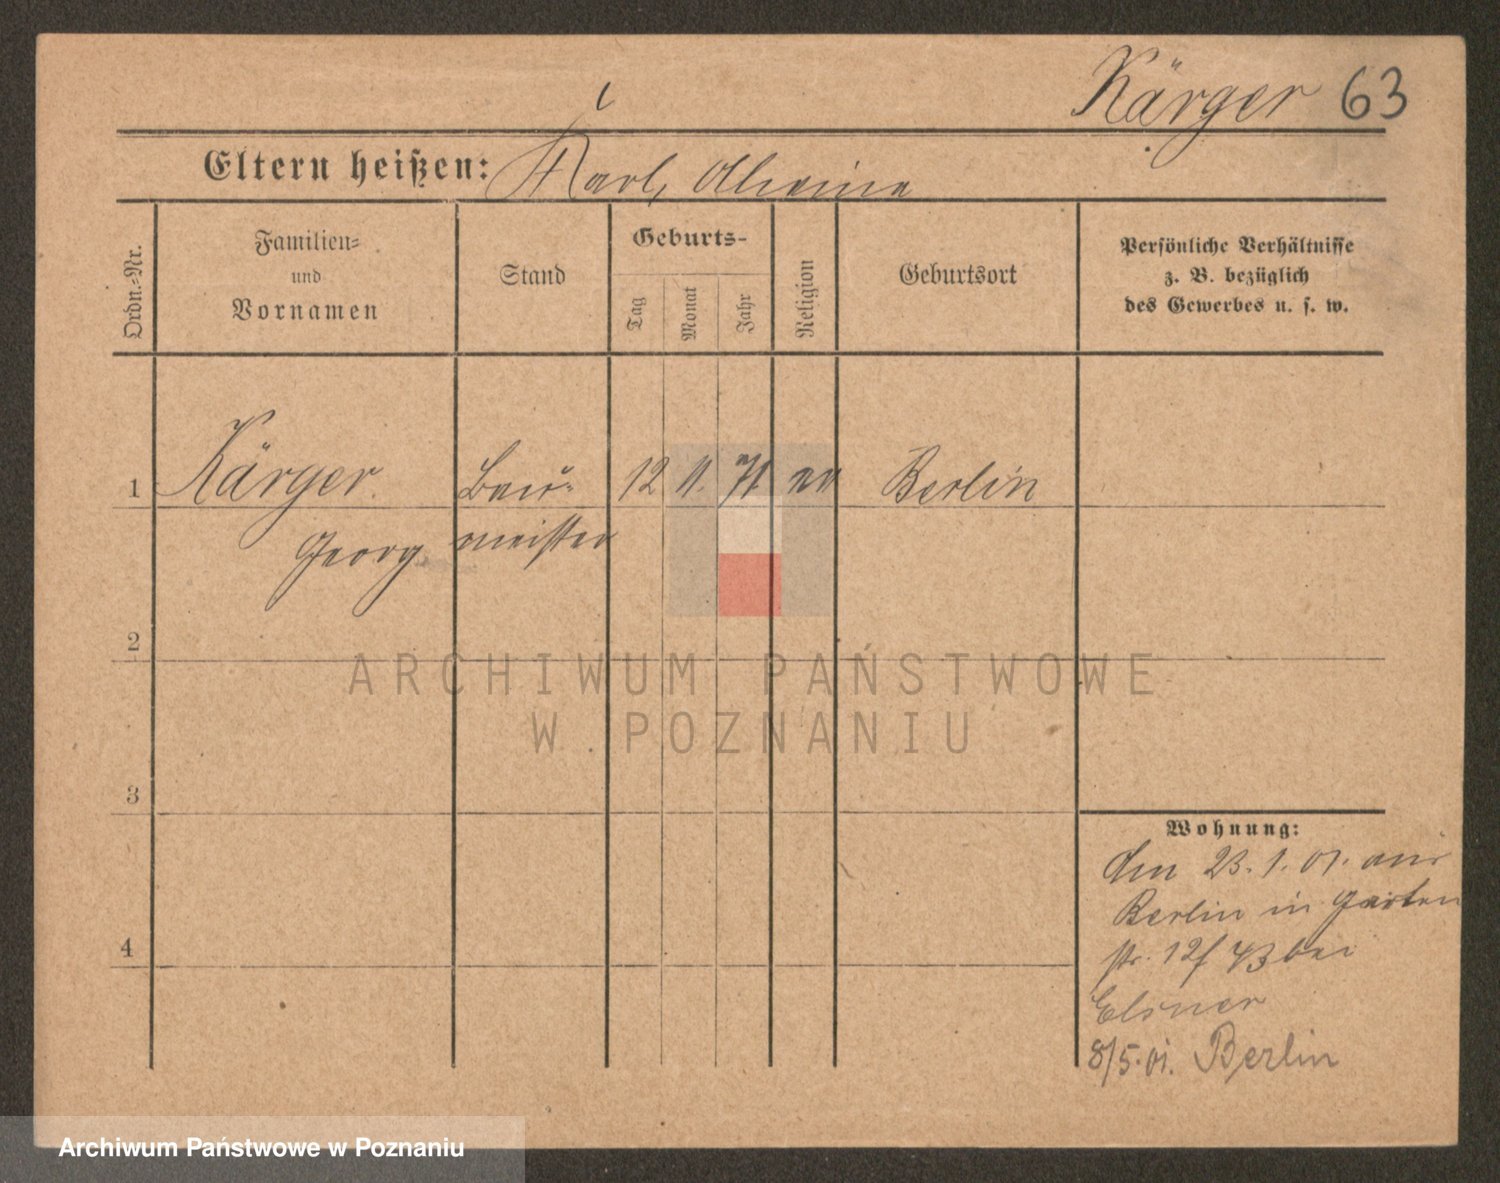 Kärger 63
Eltern heißen: Karl,
Ordn.-Nr.
Familien-
und
Vornamen
Stand
Geburts-
Tag
Monat
Jahr
Religion
Geburtsort
Persönliche Verhältnisse
z. B. bezüglich
des Gewerbes u. s. w.
1 Kärger Bau- 12 11. 71 ev Berlin
Georg meister
2
3
4
Wohnung:
den 23. 1. 01. aus
Berlin in Garten
str. 12 bei
Elsner
8/5.01. Berlin
ARCHIWUM PAŃSTWOWE
W POZNANIU
Archiwum Państwowe w Poznaniu